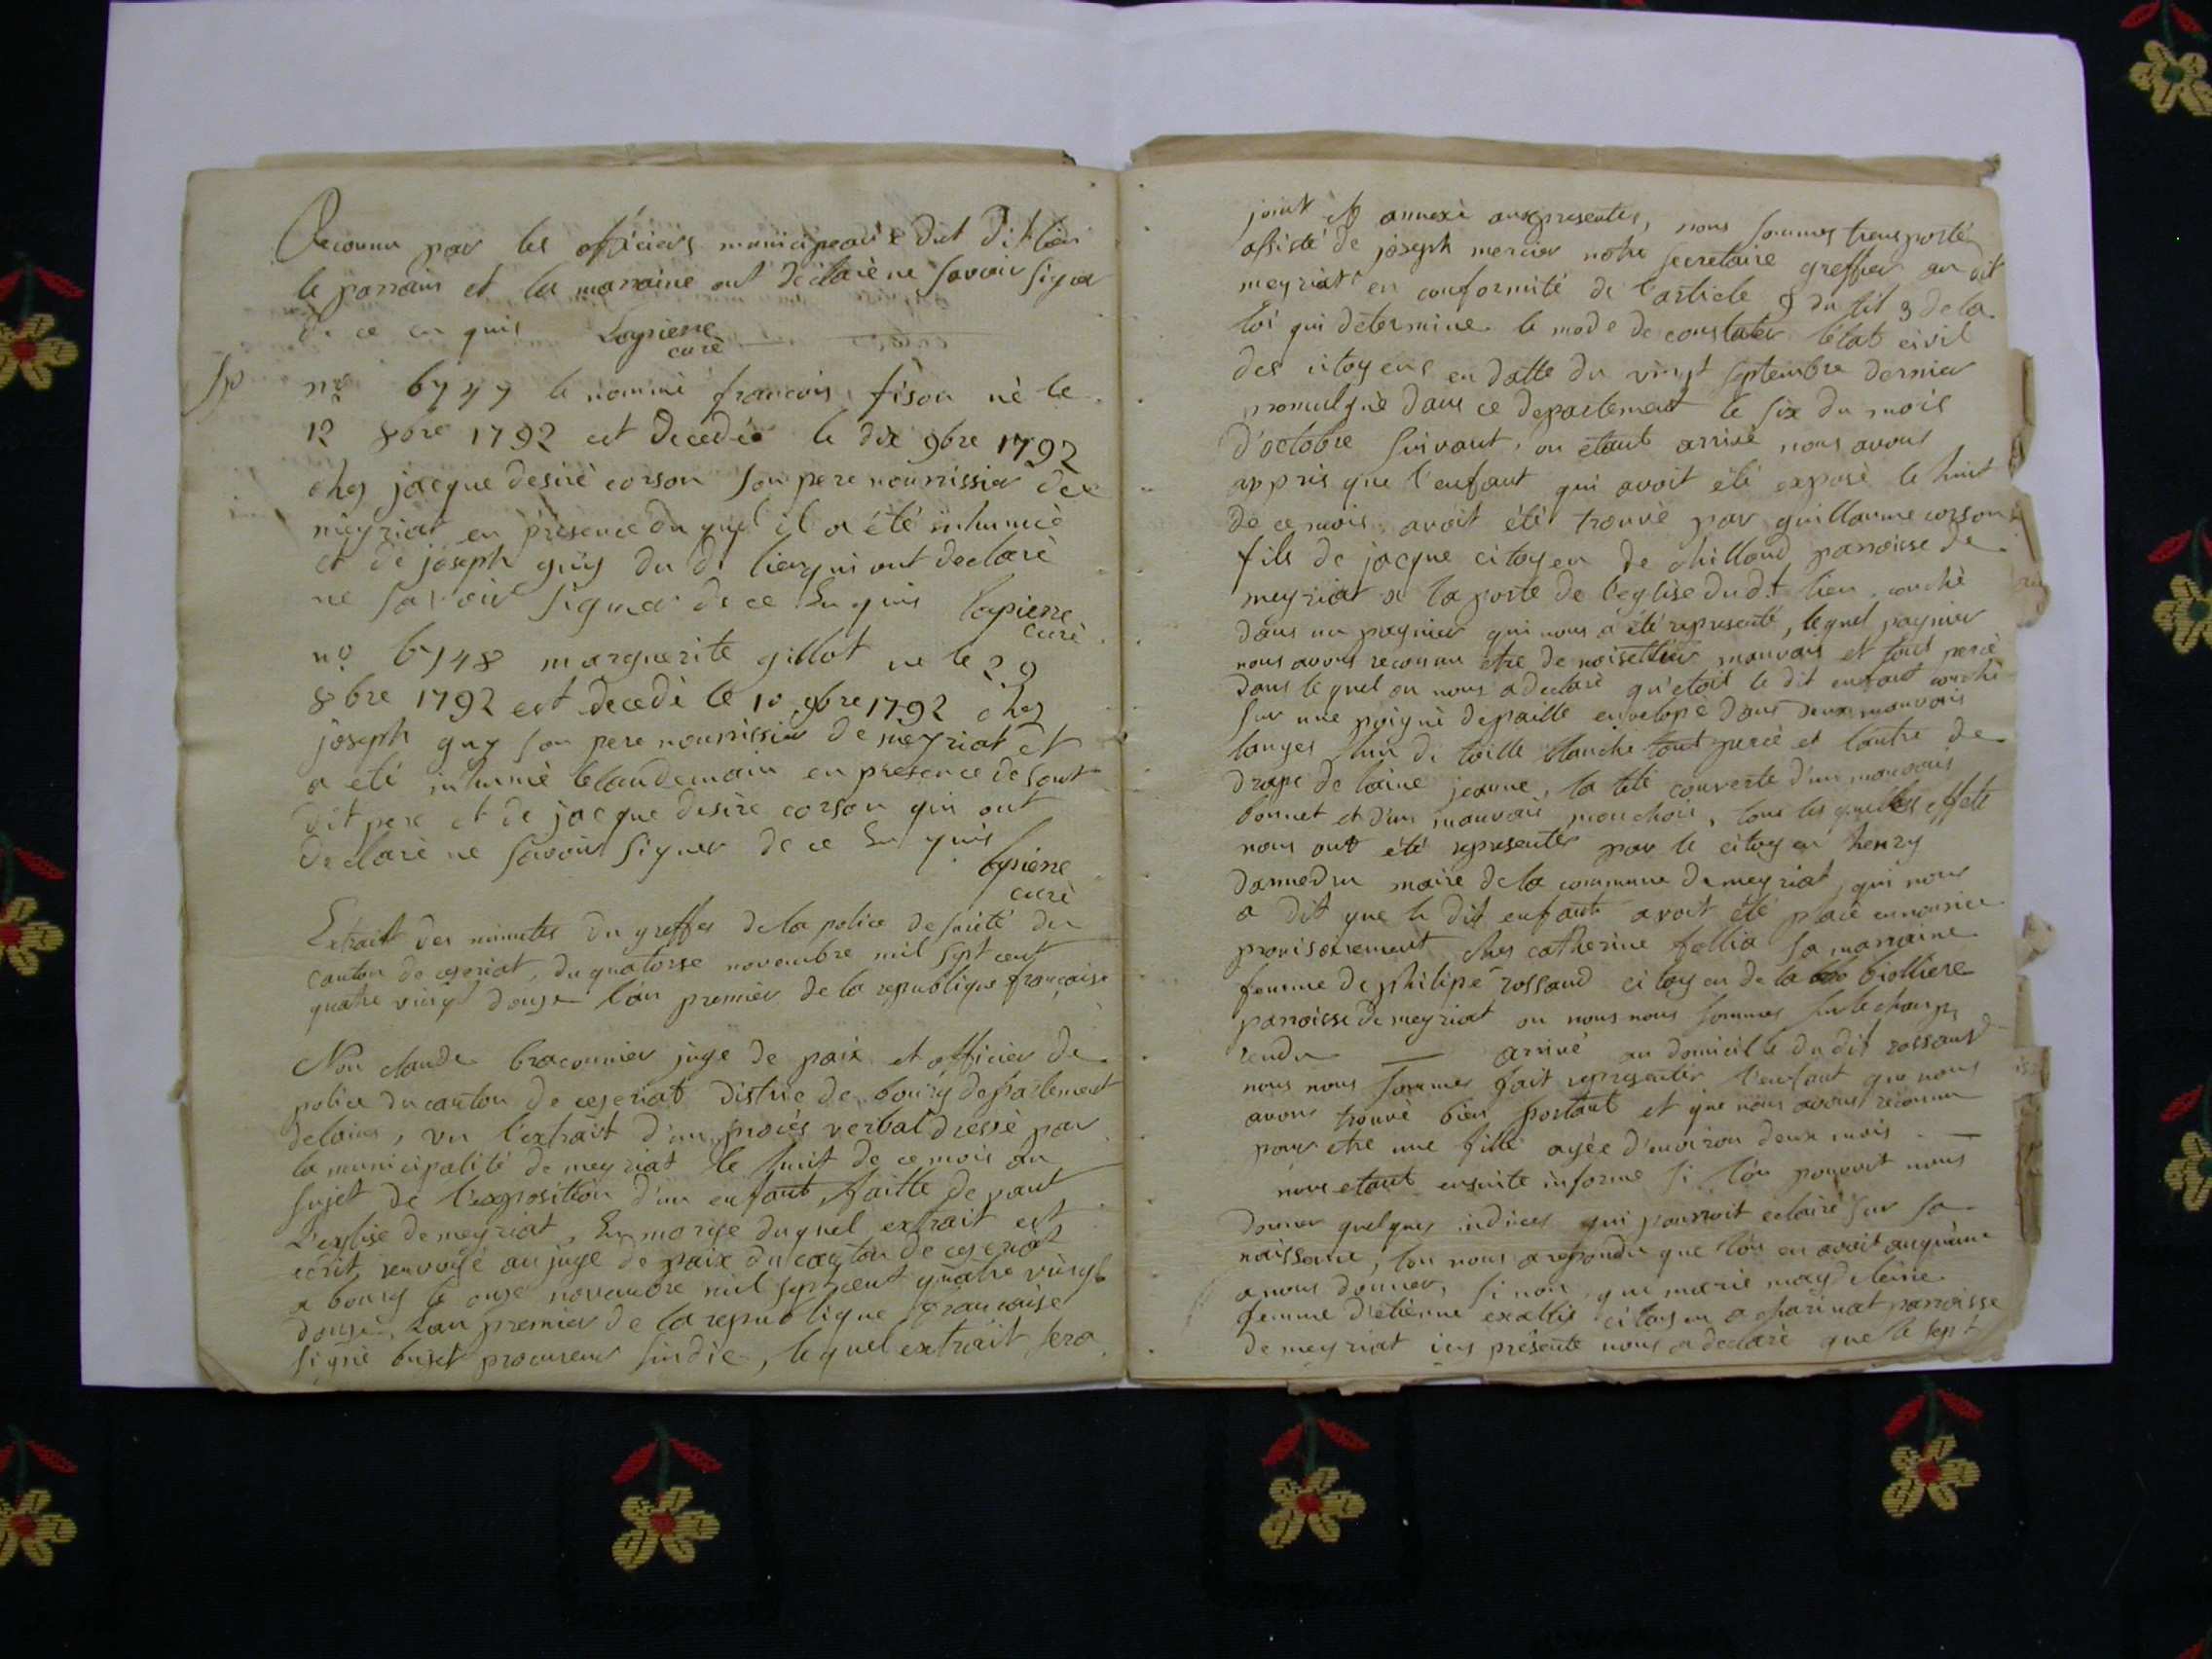 Reconnu par les officiers municipeaux dut dit lieu
le parrain et la marraine ont déclaré ne savoir signer
de ce en quis Lapierre
curé
no 6747 le nommé francois fison né le
12 8bre 1792 est decedé le dix 9bre 1792
chez jacque desiré corson son pere nourrissier de
meyriat en présence du quel il a été inhumé
et de joseph guy du d. lieu qui ont declaré
ne savoir signer de ce En quis lapierre
curé
no 6748 marguerite gillot ne le 29
8bre 1792 est decedé le 10 9bre 1792 chez
joseph guy son pere nourrissier de meyriat et
a été inhumé le landemain en presence de sont
dit pere et de jacque desire corson qui ont
declaré ne savoir signer de ce En quis
lapierre
curé
Extrait des minutes du greffes de la police de sureté du
canton de ceseriat, du quatorse novembre mil sept cent
quatre vingt douse l'an premier de la republique française
Nou claude braconnier juge de paix et officier de
police du canton de ceseriat distric de bourg departement
delains, vu l'extrait d'un procés verbal dressé par
la municipalité de meyriat le huit de ce mois au
sujet de l'exposition d'un enfant, faitte devant
L'eglise de meyriat, En marge duquel extrait est
ecrit renvoyé au juge de paix du canton de ceseriat
a bourg le onze novembre mil sept cent quatre vingt
douse, L'an premier de la republique francaise
signé buget procureur sindic, le quel extrait sera
joint et annexé aux presentes, nous sommes transporté
assisté de joseph mercier notre secretaire greffier au dit
meyriat en conformité de l'article 9 du tit 3 de la
loi qui determine le mode de constater l'état civil
des citoyens en datte du vingt septembre dernier
promulgué dans ce departement le six du mois
d'octobre suivant, ou etant arrivé nous avons
appris que l'enfant qui avoit été exposé le huit
de ce mois avoit été trouvé par guillaume corson
fils de jacque citoyen de chilloud parroisse de
meyriat a la porte de l'eglise dud.t lieu couché
dans un pagnier qui nous a été representé, lequel pagnier
nous avons reconnu etre de noisettier mauvais et fond percé
dans le quel on nous a declaré qu'etoit le dit enfant couché
sur une poigné de paille envelopé dans deux mauvais
langes l'un de toille blanche tout percé et l'autre de
drapt de laine jeaune, la tête couverte d'un mauvais
bonnet et d'un mauvais mouchoir, tous les quelles effets
nous ont été representés par le citoyen henry
dannedru maire de la commune de meyriat, qui nous
a dit que le dit enfant avoit été placé en nourice
provisoirement ches catherine follia sa marraine
femme de philipe rossand citoyen de la biolliere
parroisse de meyriat ou nous nous sommes sur le champ
rendu — arrivé au domicille du dit rossand
nous nous sommes fait representer l'enfant que nous
avons trouvé bien portant et que nous avons reconnu
pour etre une fille agée d'environ deux mois —
nous etant ensuite informé si l'on pouvoit nous
donner quelques indices qui pourroit eclairé sur sa
naissance, l'on nous a repondu que l'on en avoit aucquune
a nous donner, si non que marie magdeleine
femme d'etienne exallie citoyen a charinat parroisse
de meyriat icy présente nous a declaré que le sept